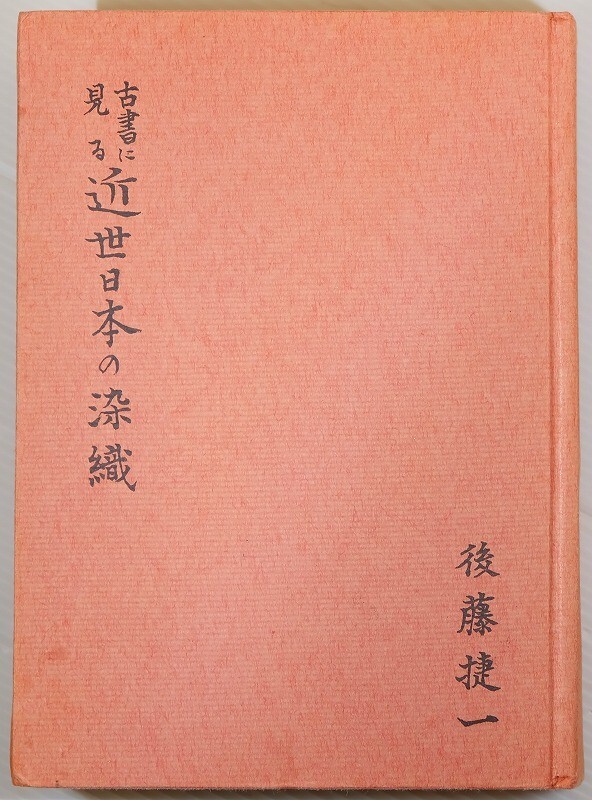 古書に見る近世日本の染織
後藤捷一